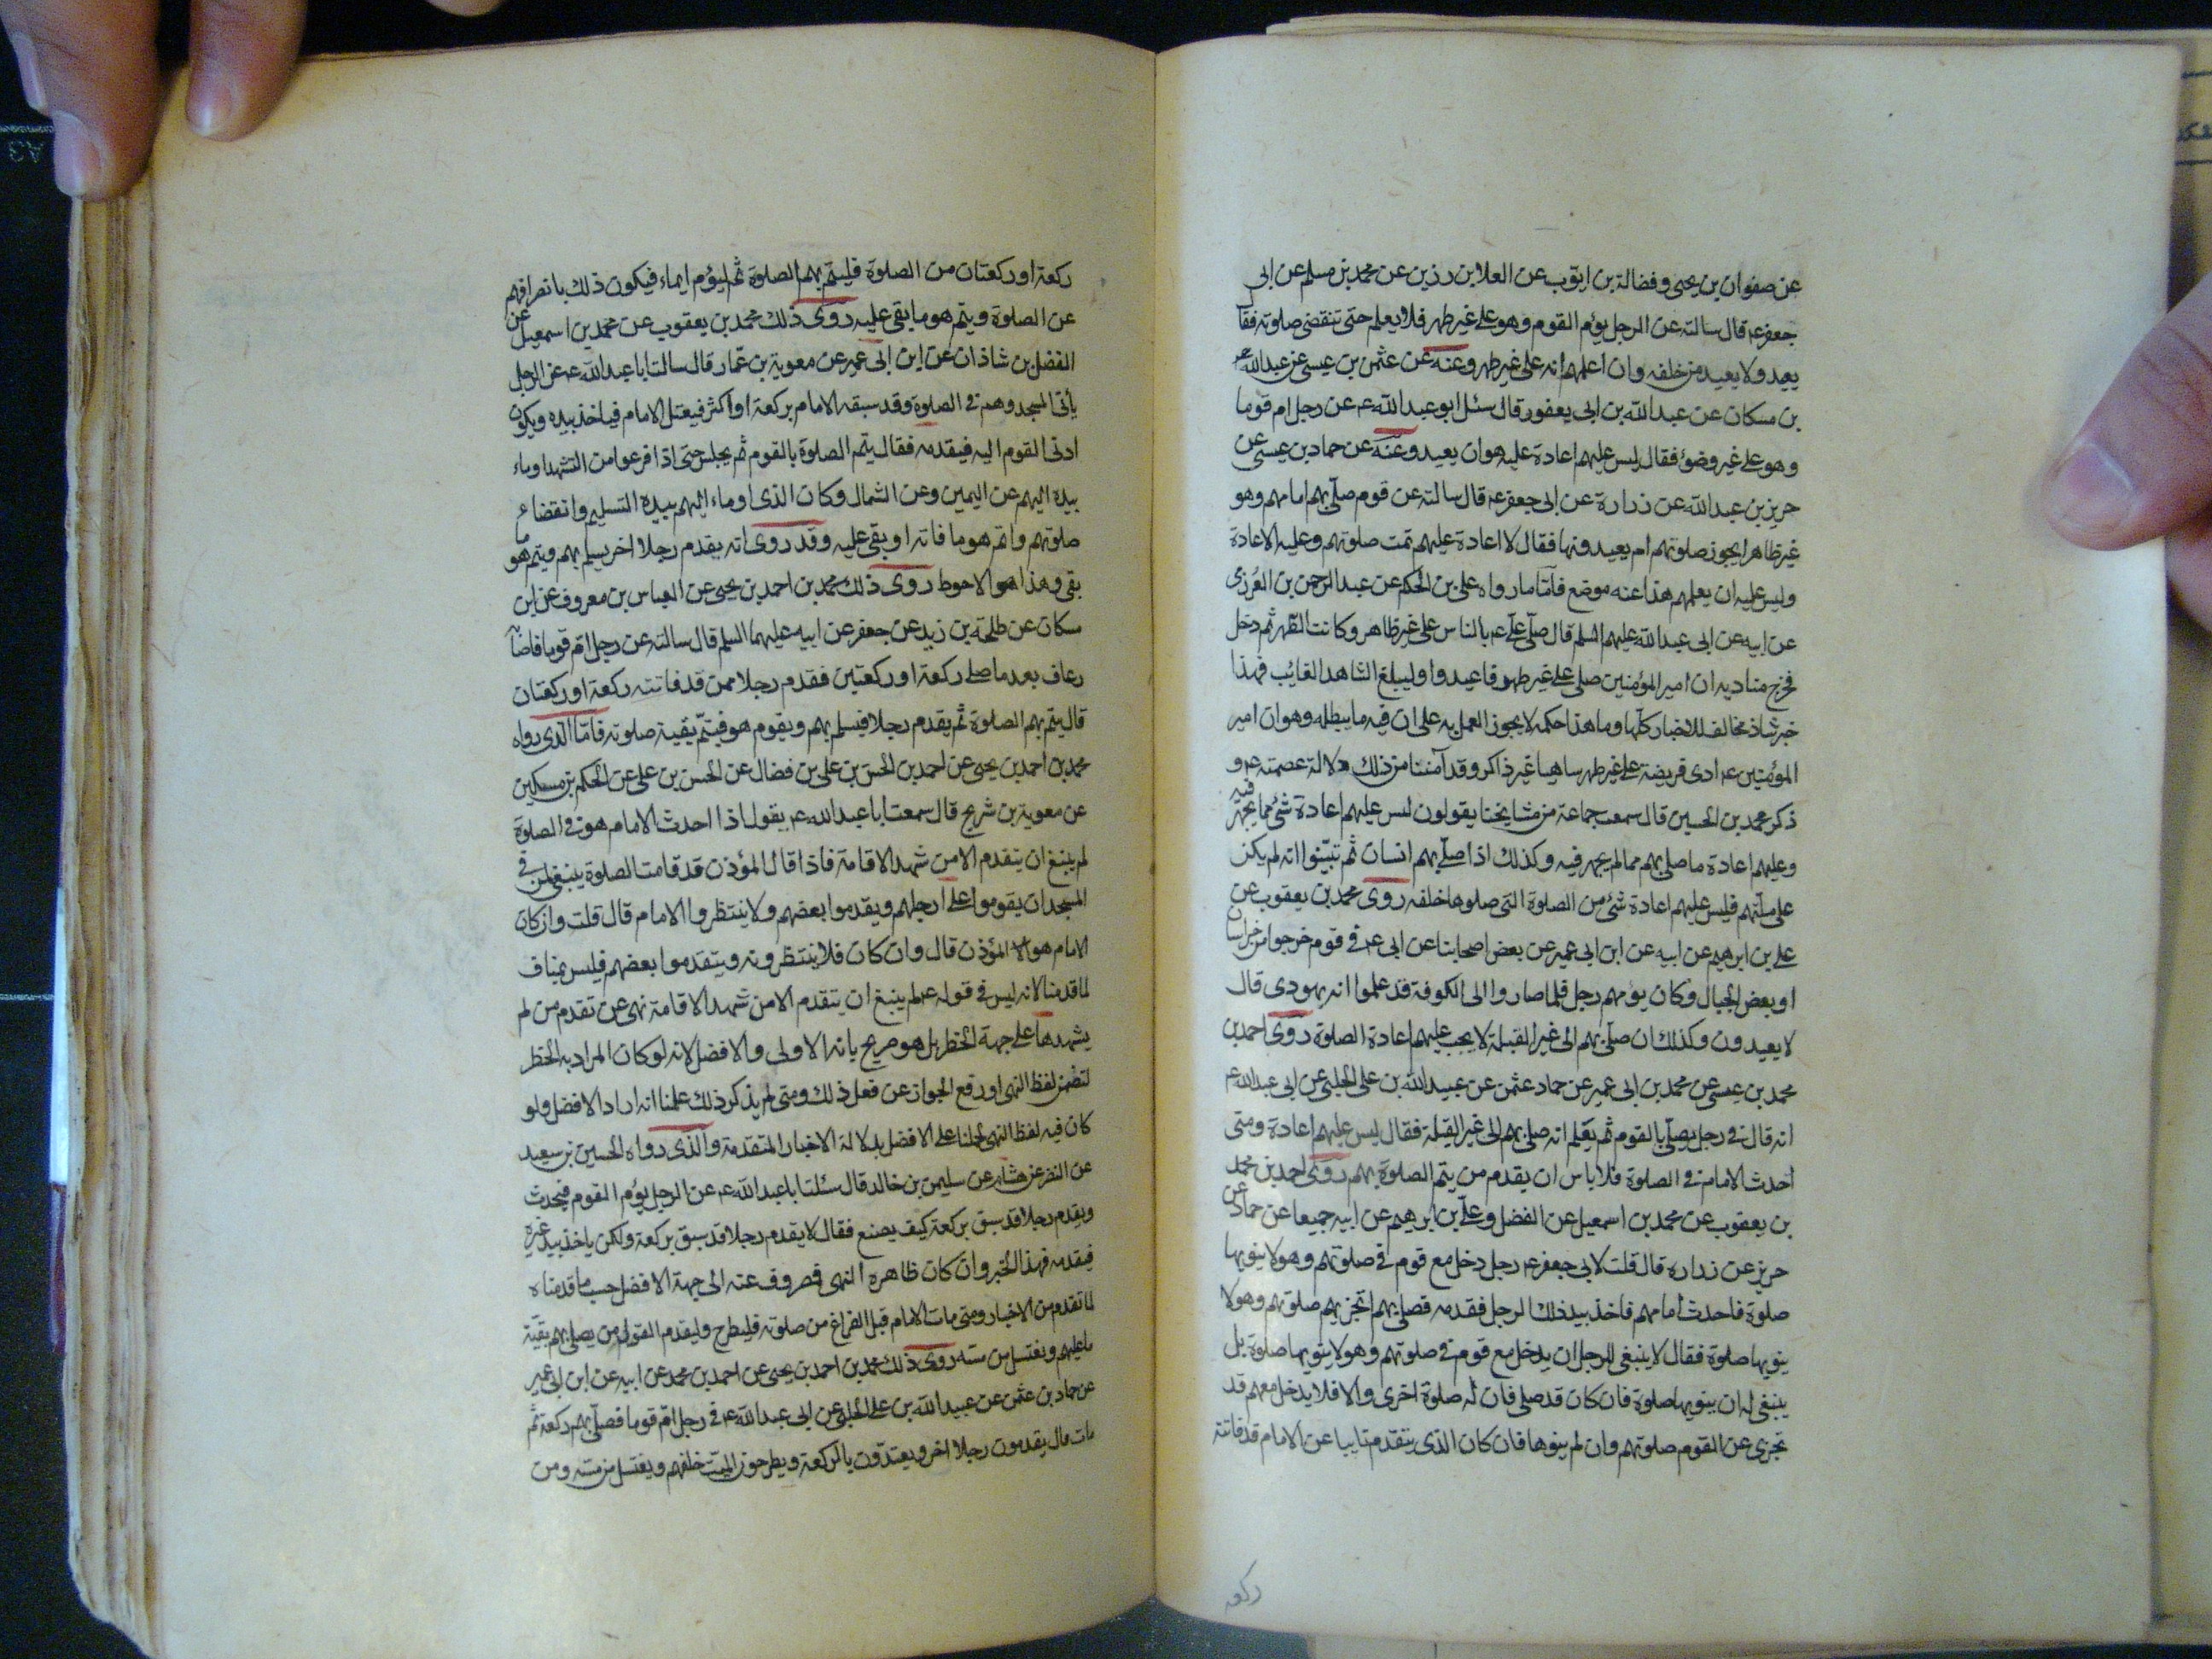 عن صفوان بن يحيى وفضالة بن ايوب عن العلا بن رزين عن محمد بن مسلم عن ابى
جعفر ع قال سالته عن الرجل يؤم القوم وهو على غير طهر فلا يعلم حتى تنقضى صلوته فقال
يعيد ولا يعيد من خلفه وان اعلمهم انه على غير طهر وعنه عن عثمن بن عيسى عن عبد الله
بن مسكان عن عبد الله بن ابى يعفور قال سئل ابو عبد الله ع عن رجل ام قوما
وهو على غير وضوء فقال ليس عليهم اعادة عليه هو ان يعيد وعنه عن حماد بن عيسى عن
حريز بن عبد الله عن زرارة عن ابى جعفر ع قال سالته عن قوم صلى بهم امامهم وهو
غير ظاهر ايجوز صلوتهم ام يعيدونها فقال لا اعادة عليهم تمت صلوتهم وعليه الاعادة
وليس عليه ان يعلمهم هذا عنه موضع فاما ما رواه على بن الحكم عن عبد الرحمن بن العرزمى
عن ابيه عن ابى عبد الله عليهم السلم قال صلى على ع بالناس على غير ظاهر وكانت الظهر ثم دخل
فخرج مناديه ان امير المؤمنين صلى على غير طهور فاعيدوا وليبلغ الشاهد الغايب فهذا
خبر شاذ مخالف للاخبار كلها وما هذا حكمه لا يجوز العمل به على ان فيه ما يبطله وهو ان امير
المؤمنين ع ادى فريضة على غير طهر ساهيا غير ذاكر وقد آمننا من ذلك دلالة عصمته ع و
ذكر محمد بن الحسين قال سمعت جماعة من مشايخنا يقولون ليس عليهم اعادة شئ مما يجهر فيه
وعليهم اعادة ما صلى بهم مما لم يجهر فيه وكذلك اذا صلى بهم انسان ثم تبينوا انه لم يكن
على ملتهم فليس عليهم اعادة شئ من الصلوة التى صلوها خلفه روى محمد بن يعقوب عن
على بن ابرهيم عن ابيه عن ابن ابى عمير عن بعض اصحابنا عن ابى ع فى قوم خرجوا من خراسان
او بعض الجبال وكان يؤمهم رجل فلما صاروا الى الكوفة قد علموا انه يهودى قال
لا يعيدون وكذلك ان صلى بهم الى غير القبلة لا يجب عليهم اعادة الصلوة روى احمد بن
محمد بن عيسى عن محمد بن ابى عمير عن حماد عثمن عن عبيد الله بن على الحلبى عن ابى عبد الله ع
انه قال فى رجل يصلى بالقوم ثم يعلم انه صلى بهم الى غير القبلة فقال ليس عليهم اعادة ومتى
احدث الامام فى الصلوة فلا باس ان يقدم من يتم الصلوة بهم روى احمد بن محمد
بن يعقوب عن محمد بن اسمعيل عن الفضل وعلى بن ابرهيم عن ابيه جميعا عن حماد عن
حريز عن زراره قال قلت لابى جعفر ع رجل دخل مع قوم فى صلوتهم وهو لا ينويها
صلوة فاحدث امامهم فاخذ بيد ذلك الرجل فقدمه فصلى بهم اتجزيهم صلوتهم وهو لا
ينويها صلوة فقال لا ينبغى للرجل ان يدخل مع قوم فى صلوتهم وهو لا ينويها صلوة بل
ينبغى له ان ينويها صلوة فان كان قد صلى فان له صلوة اخرى والا فلا يدخل معهم قد
تجزى عن القوم صلوتهم وان لم ينوها فان كان الذى يتقدم نايبا عن الامام قد فاتته
ركعه
ركعة او ركعتان من الصلوة فليتم بهم الصلوة ثم ليؤم ايماء فيكون ذلك بانصرافهم
عن الصلوة ويتم هو ما بقى عليه روى ذلك محمد بن يعقوب عن محمد بن اسمعيل عن
الفضل بن شاذان عن ابن ابى عمير عن معوية بن عمار قال سالت ابا عبد الله ع عن الرجل
يأتى المسجد وهم فى الصلوة وقد سبقه الامام بركعة او اكثر فيعتل الامام فياخذ بيده ويكون
ادنى القوم اليه فيقدمه فقال يتم الصلوة بالقوم ثم يجلس حتى اذا فرغوا من التشهد اوماء
بيده اليهم عن اليمين وعن الشمال وكان الذى اوماء اليهم بيده التسليم وانقضاء
صلوتهم واتم هو ما فاته او بقى عليه وقد روى انه يقدم رجلا اخر يسلم بهم ويتم هو ما
بقى وهذا هو الاحوط روى ذلك محمد بن احمد بن يحيى عن العباس بن معروف عن ابن
سكان عن طلحة بن زيد عن جعفر عن ابيه عليهما السلم قال سالته عن رجل ام قوما فاصابه
رعاف بعد ما صلى ركعة او ركعتين فقدم رجلا ممن قد فاتته ركعة او ركعتان
قال يتم بهم الصلوة ثم يقدم رجلا فيسلم بهم ويقوم هو فيتم بقية صلوته فاما الذى رواه
محمد بن احمد بن يحيى عن احمد بن الحسن بن على بن فضال عن الحسن بن على عن الحكم بن مسكين
عن معوية بن شريح قال سمعت ابا عبد الله ع يقول اذا احدث الامام هو فى الصلوة
لم ينبغ ان يتقدم الا من شهد الاقامة فاذا قال المؤذن قد قامت الصلوة ينبغى لمن فى
المسجد ان يقوموا على ارجلهم ويقدموا بعضهم ولا ينتظروا الامام قال قلت وان كان
الامام هو المؤذن قال وان كان فلا ينتظرونه ويتقدموا بعضهم فليس بمناف
لما قدمنا لانه ليس فى قوله ع لم ينبغ ان يتقدم الا من شهد الاقامة نهى عن تقدم من لم
يشهدها على جهة الحظر بل هو صريح بانه الاولى والافضل لانه لو كان المراد به الحظر
لتضمن لفظ النهى او رفع الجواز عن فعل ذلك ومتى لم يذكر ذلك علمنا انه اراد الافضل ولو
كان فيه لفظ النهى لحملنا على الافضل بدلالة الاخبار المتقدمة والذى رواه الحسين بن سعيد
عن النضر عن هشام عن سليمن بن خالد قال سئلت ابا عبد الله ع عن الرجل يؤم القوم فيحدث
ويقدم رجلا قد سبق بركعة كيف يصنع فقال لا يقدم رجلا قد سبق بركعة ولكن ياخذ بيد غيره
فيقدمه فهذا الخبر وان كان ظاهره النهى فمصروف عنه الى جهة الافضل حسب ما قدمناه
لما تقدم من الاخبار ومتى مات الامام قبل الفراغ من صلوته فليطرح وليقدم القوم من يصلى بهم بقية
ما عليهم ويغتسل من مسه روى ذلك محمد بن احمد بن يحيى عن احمد بن محمد عن ابيه عن ابن ابى عمير
عن حماد بن عثمن عن عبيد الله بن على الحلبى عن ابى عبد الله ع فى رجل ام قوما فصلى بهم ركعة ثم
مات قال يقدمون رجلا اخر ويعتدون بالركعة ويطرحون الميت خلفهم ويغتسل من مسه ومن